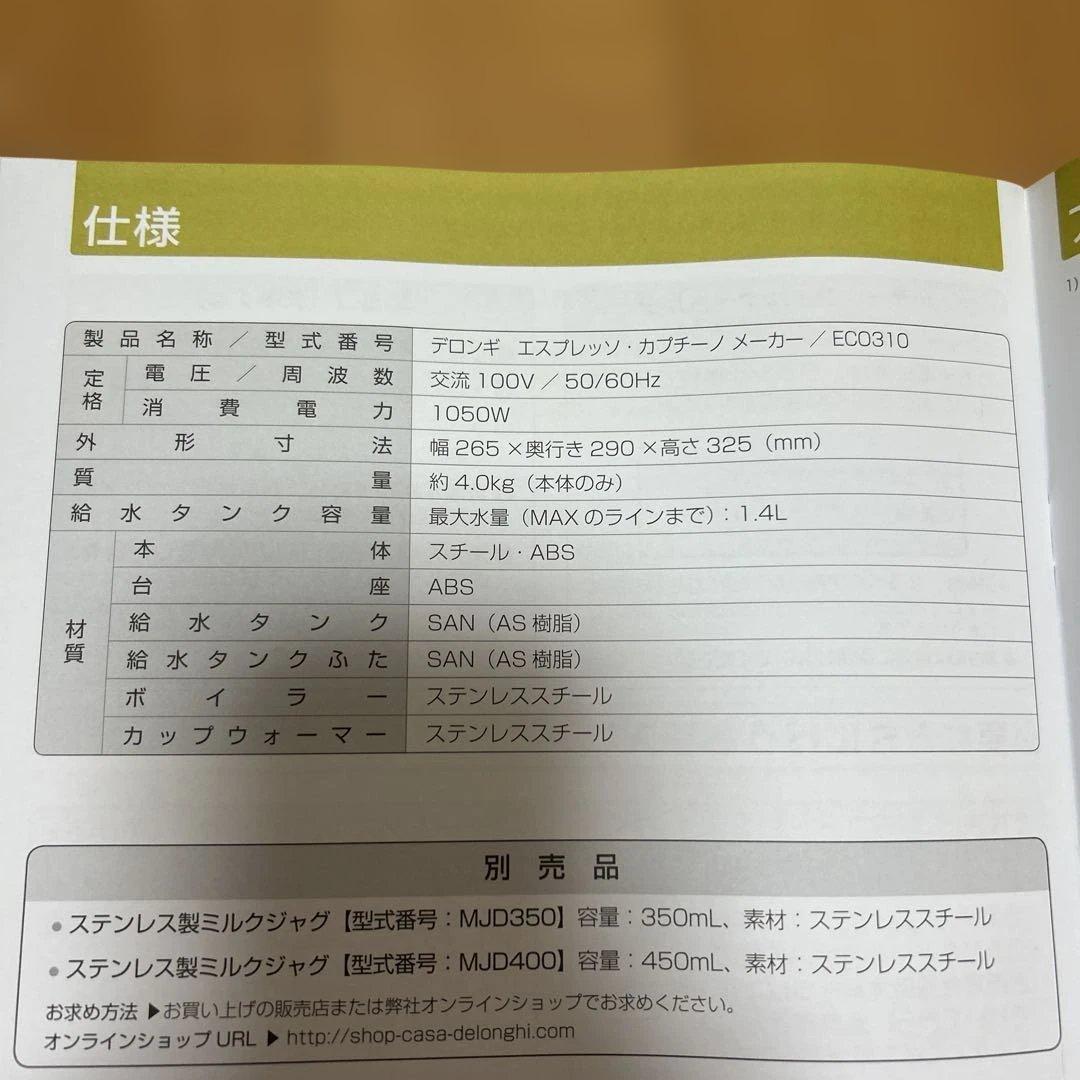 仕様
製品名称／型式番号 デロンギ エスプレッソ・カプチーノ メーカー／ECO310
定格 電圧／周波数 交流 100V ／ 50/60Hz
消費電力 1050W
外形寸法 幅 265 ×奥行き 290 ×高さ 325（mm）
質量 約 4.0kg（本体のみ）
給水タンク容量 最大水量（MAX のラインまで）：1.4L
材質 本体 スチール・ABS
台座 ABS
給水タンク SAN（AS 樹脂）
給水タンクふた SAN（AS 樹脂）
ボイラー ステンレススチール
カップウォーマー ステンレススチール
別売品
● ステンレス製ミルクジャグ【型式番号：MJD350】容量：350mL、素材：ステンレススチール
● ステンレス製ミルクジャグ【型式番号：MJD400】容量：450mL、素材：ステンレススチール
お求め方法 ▶お買い上げの販売店または弊社オンラインショップでお求めください。
オンラインショップ URL ▶ http://shop-casa-delonghi.com
1）